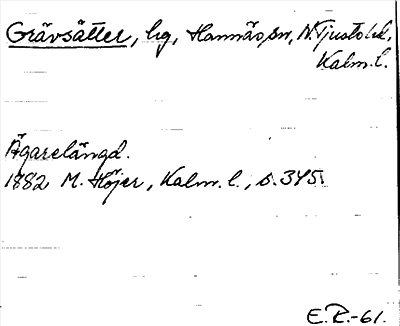 Grävsätter, hg, Hannäs sn, N. Tjusts hd,
Kalm. l.
Ägarelängd.
1882 M. Höjer, Kalm. l., s. 345.
E.R.-61.